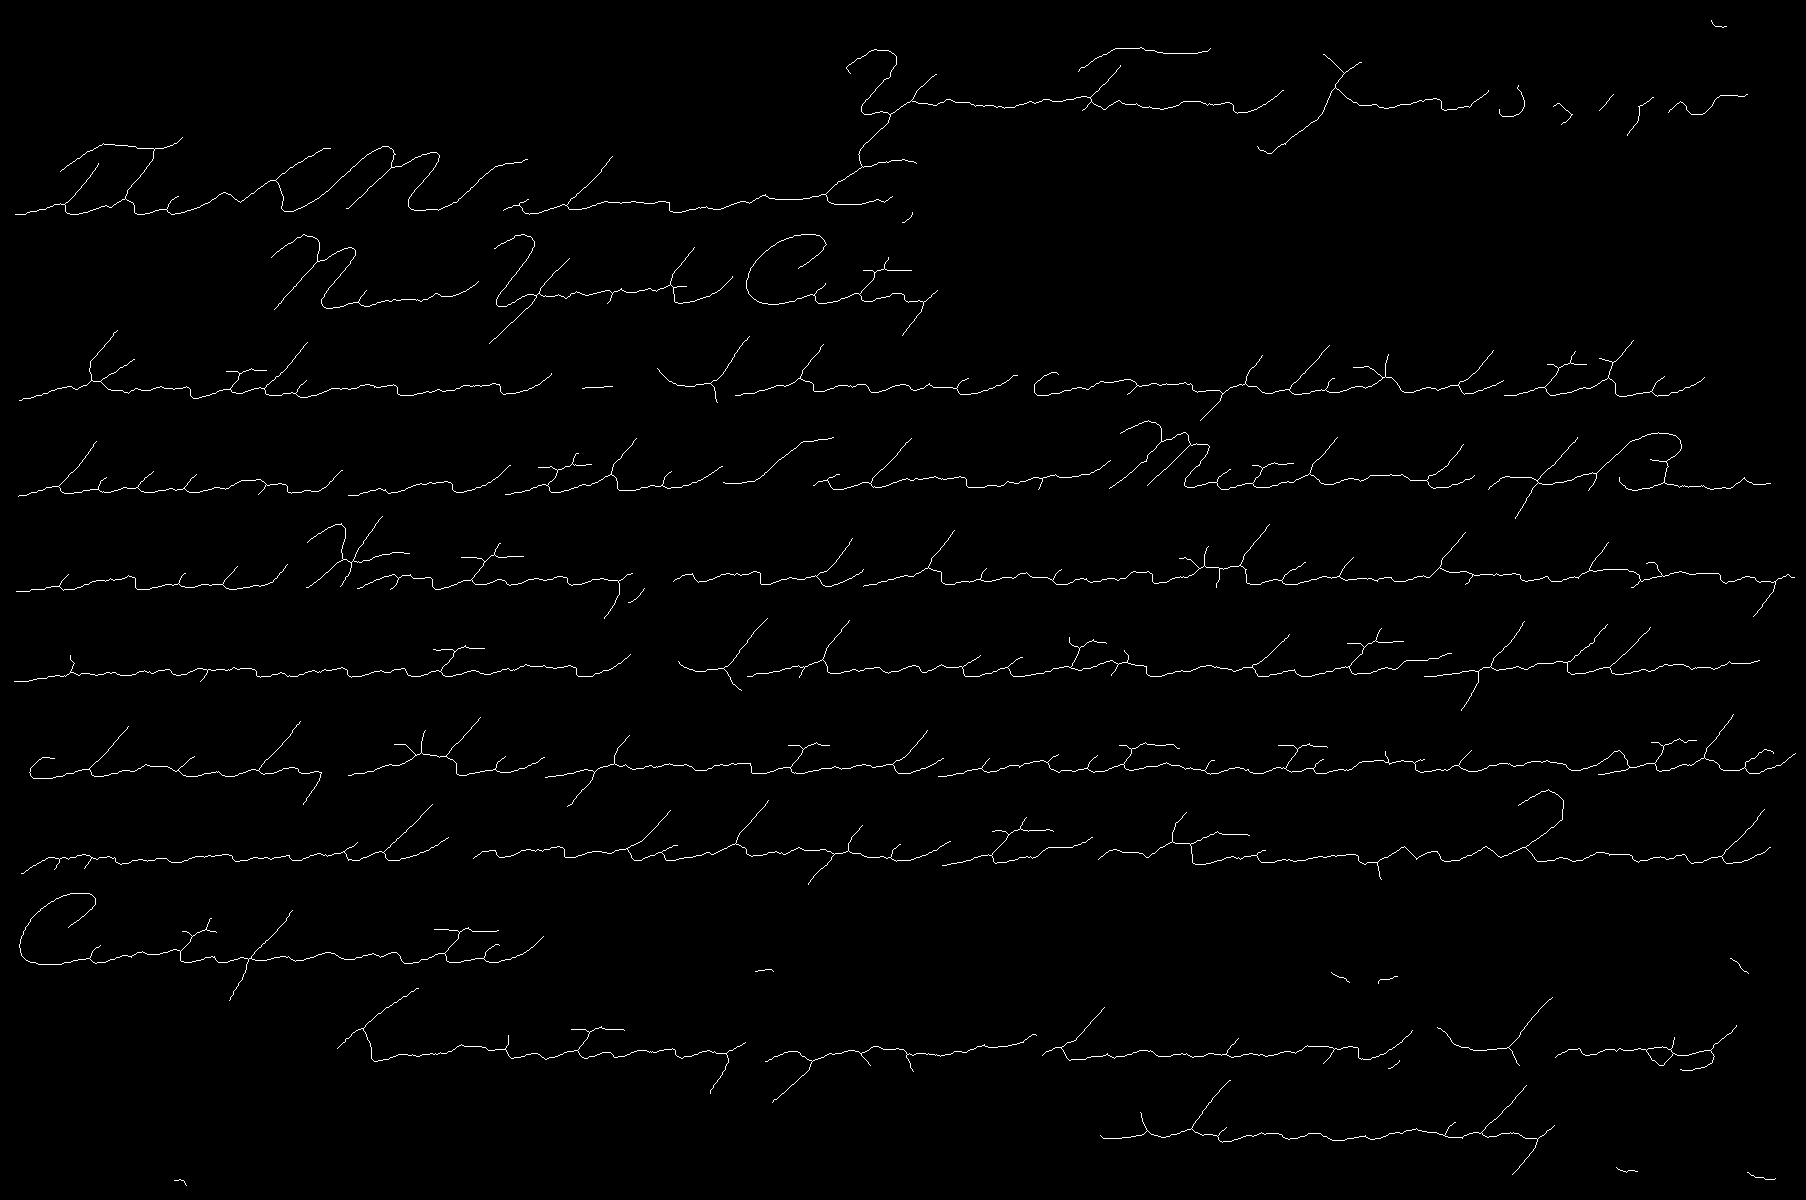 Your Town, Jan. 3, 19
The Palmer Co,
New York City
Gentlemen - I have completed the
lessons in the Palmer Method of Busi
ness Writing, and herewith hand you my
examination I have tried to follow
closely the printed instructions in the
manual and hope to
Certificate
Awaiting your decision, I am
Sincerely